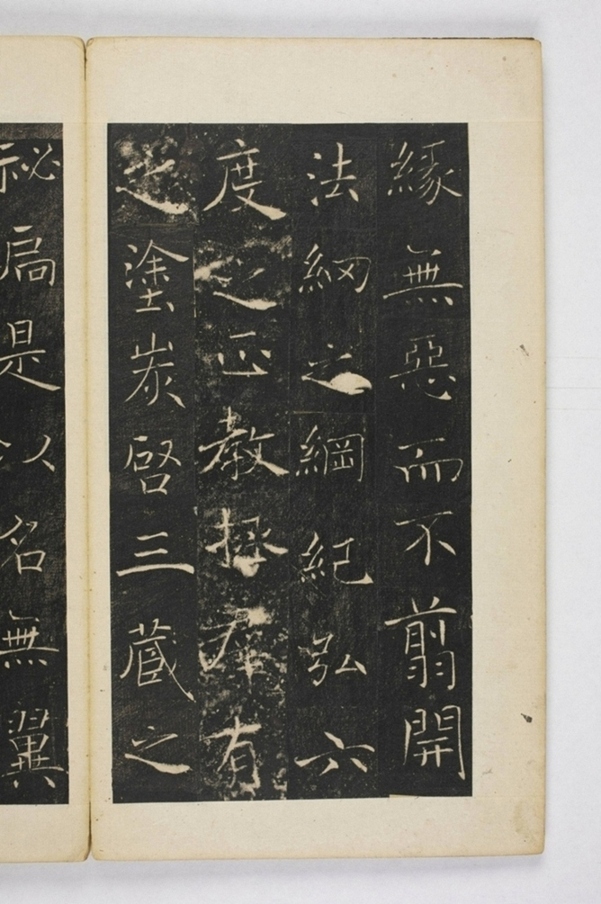 緣無惡而不翦開
法網之綱紀弘六
度之正教拯羣有
之塗炭啓三藏之
祕扃是以名無翼